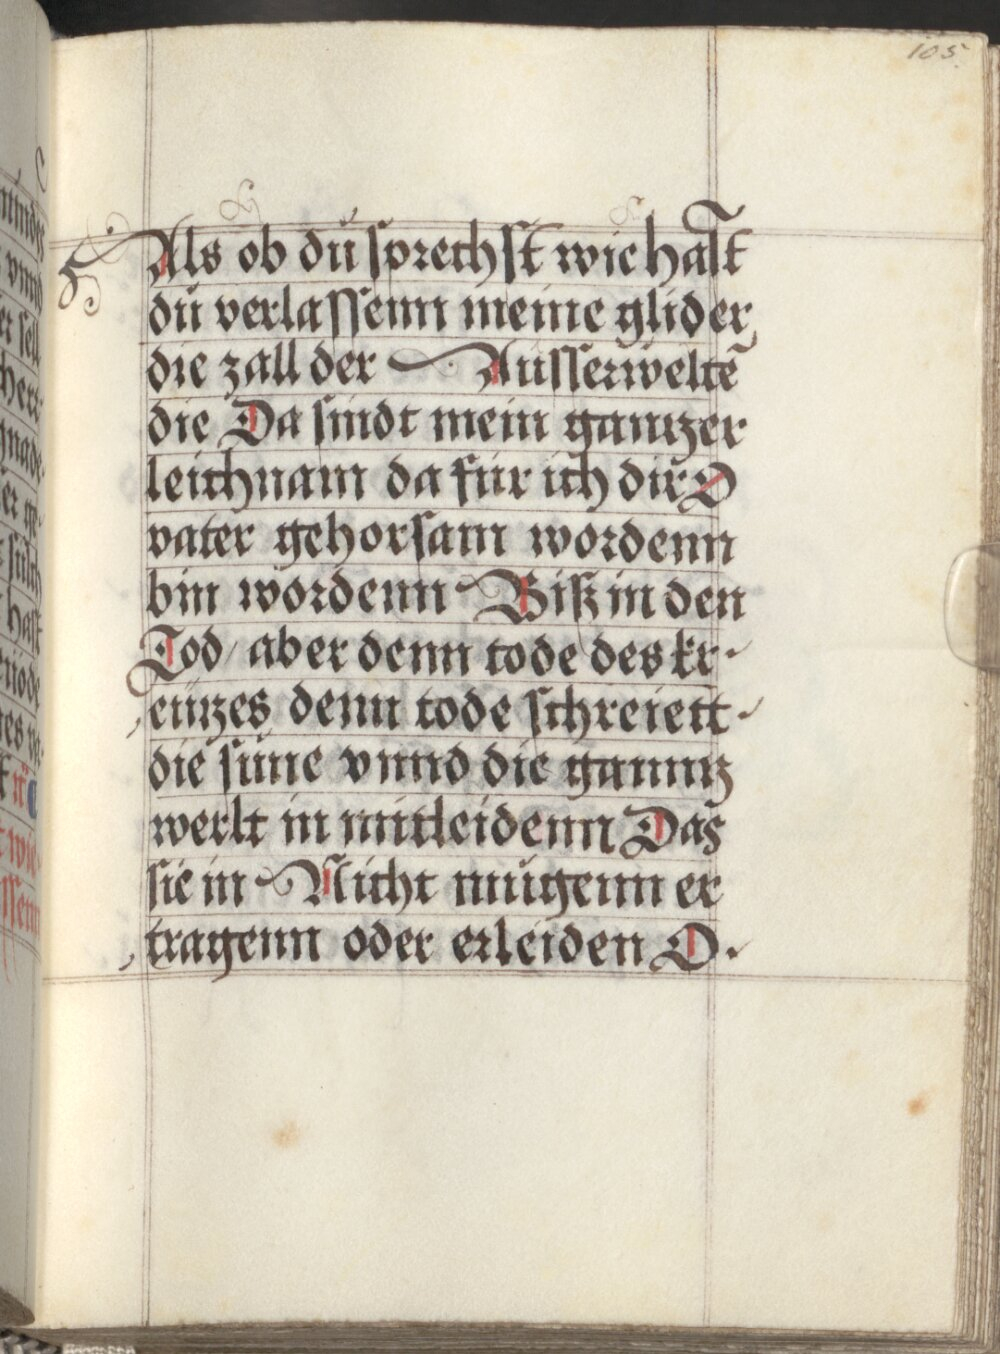 105.
Als ob dů sprechst wie hast
dů verlassenn meine glider
die zall der Aüsserwelte͂
die Da sindt mein gantzer
leichnam da für ich dir O
vater gehorsam wordenn
bin wordenn Biß in den
Tod / aber denn tode des kr-
eützes denn tode schreiett
die süne vnnd die ganntz
werlt in mitleidenn Das
sie in Nicht mügenn er
tragenn oder erleiden O